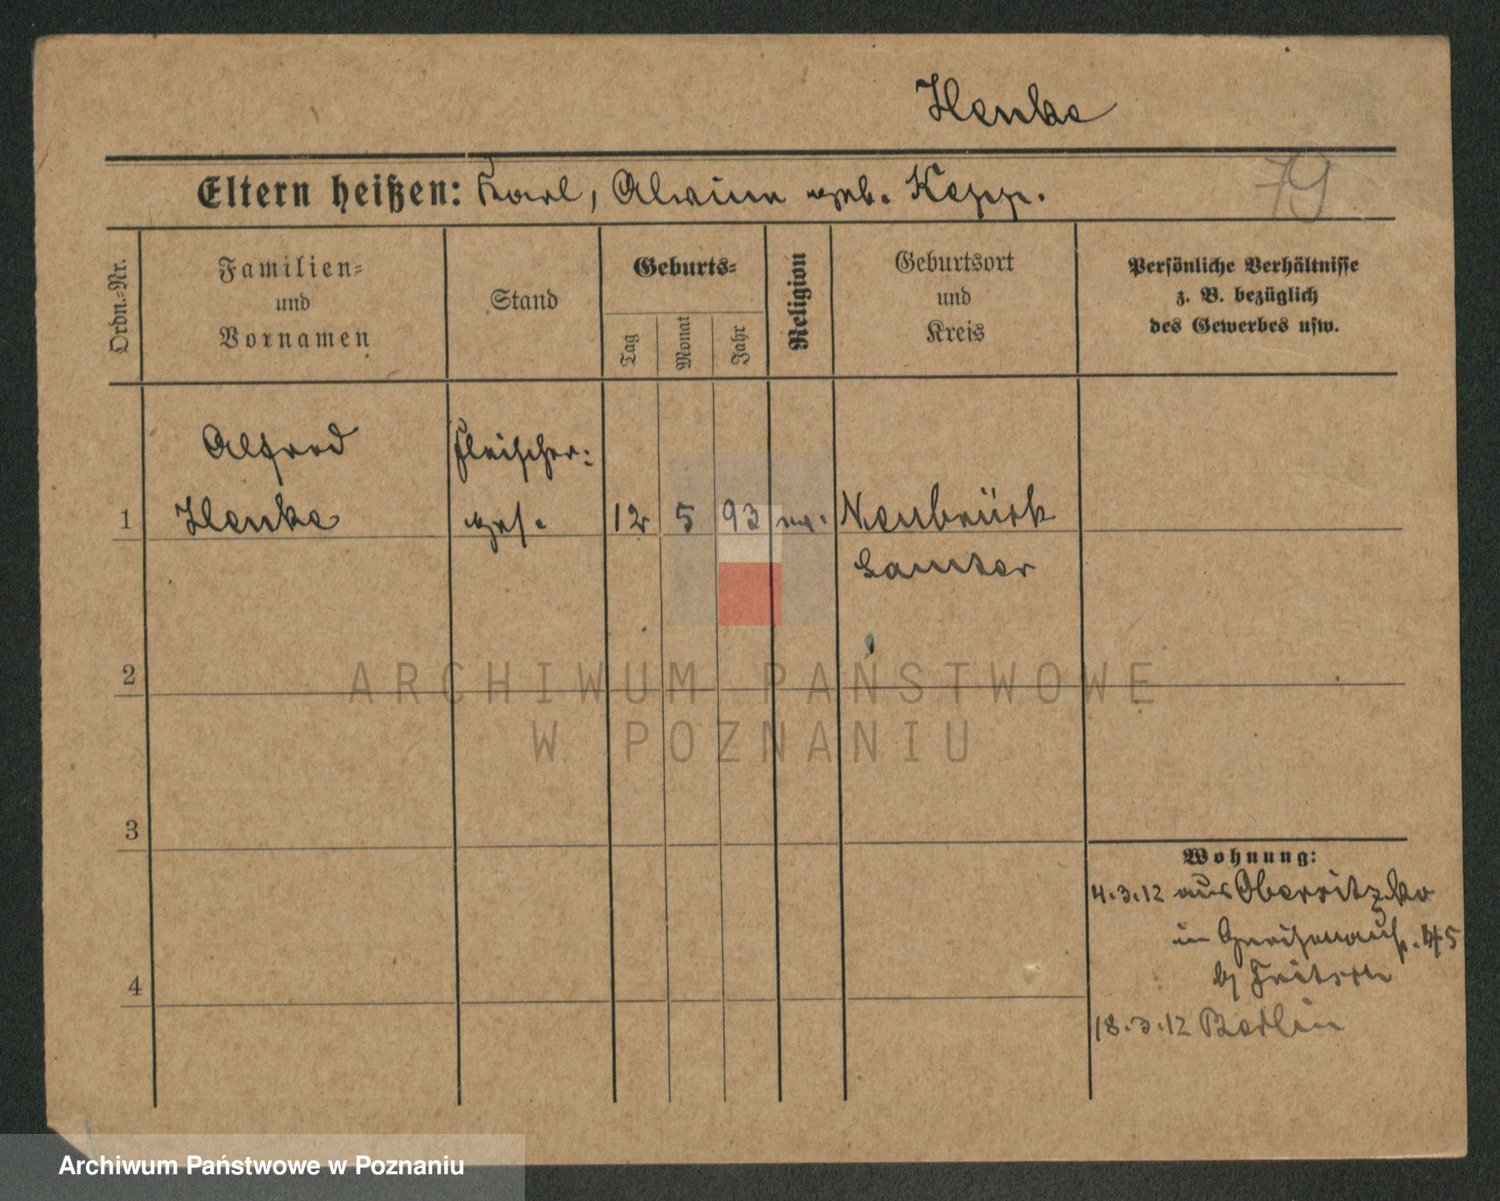 Henke
79
Eltern heißen: Karl, Alwine geb. Kopp.
Ordn.=Nr.
Familien=
und
Vornamen
Stand
Geburts=
Tag
Monat
Jahr
Religion
Geburtsort
und
Kreis
Persönliche Verhältnisse
z. B. bezüglich
des Gewerbes usw.
Alfred
Fleischer=
1 Henke ges. 12 5 93 ev. Neubrück
Samter
2
3
4
Wohnung:
4.3.12 aus Obersitzko
in Gneisenaustr. 45
b/
18.3.12 Berlin
ARCHIWUM PAŃSTWOWE
W POZNANIU
Archiwum Państwowe w Poznaniu